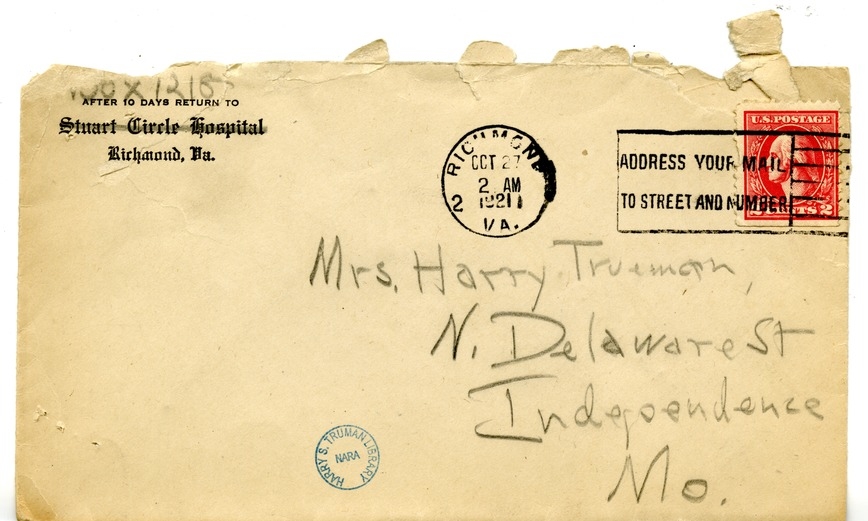 Box 1218
AFTER 10 DAYS RETURN TO
Stuart Circle Hospital
Richmond, Va.
RICHMOND
OCT 27
2 AM
1921
2
VA.
ADDRESS YOUR MAIL
TO STREET AND NUMBER
U.S. POSTAGE
2 CENTS 2
Mrs. Harry Trueman,
N. Delaware St
Independence
Mo.
HARRY S. TRUMAN LIBRARY
NARA